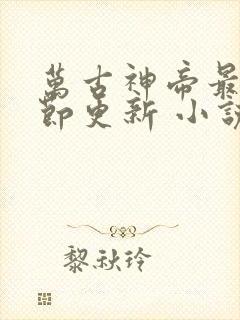 萬古神帝最
節更新 小說
黎秋玲